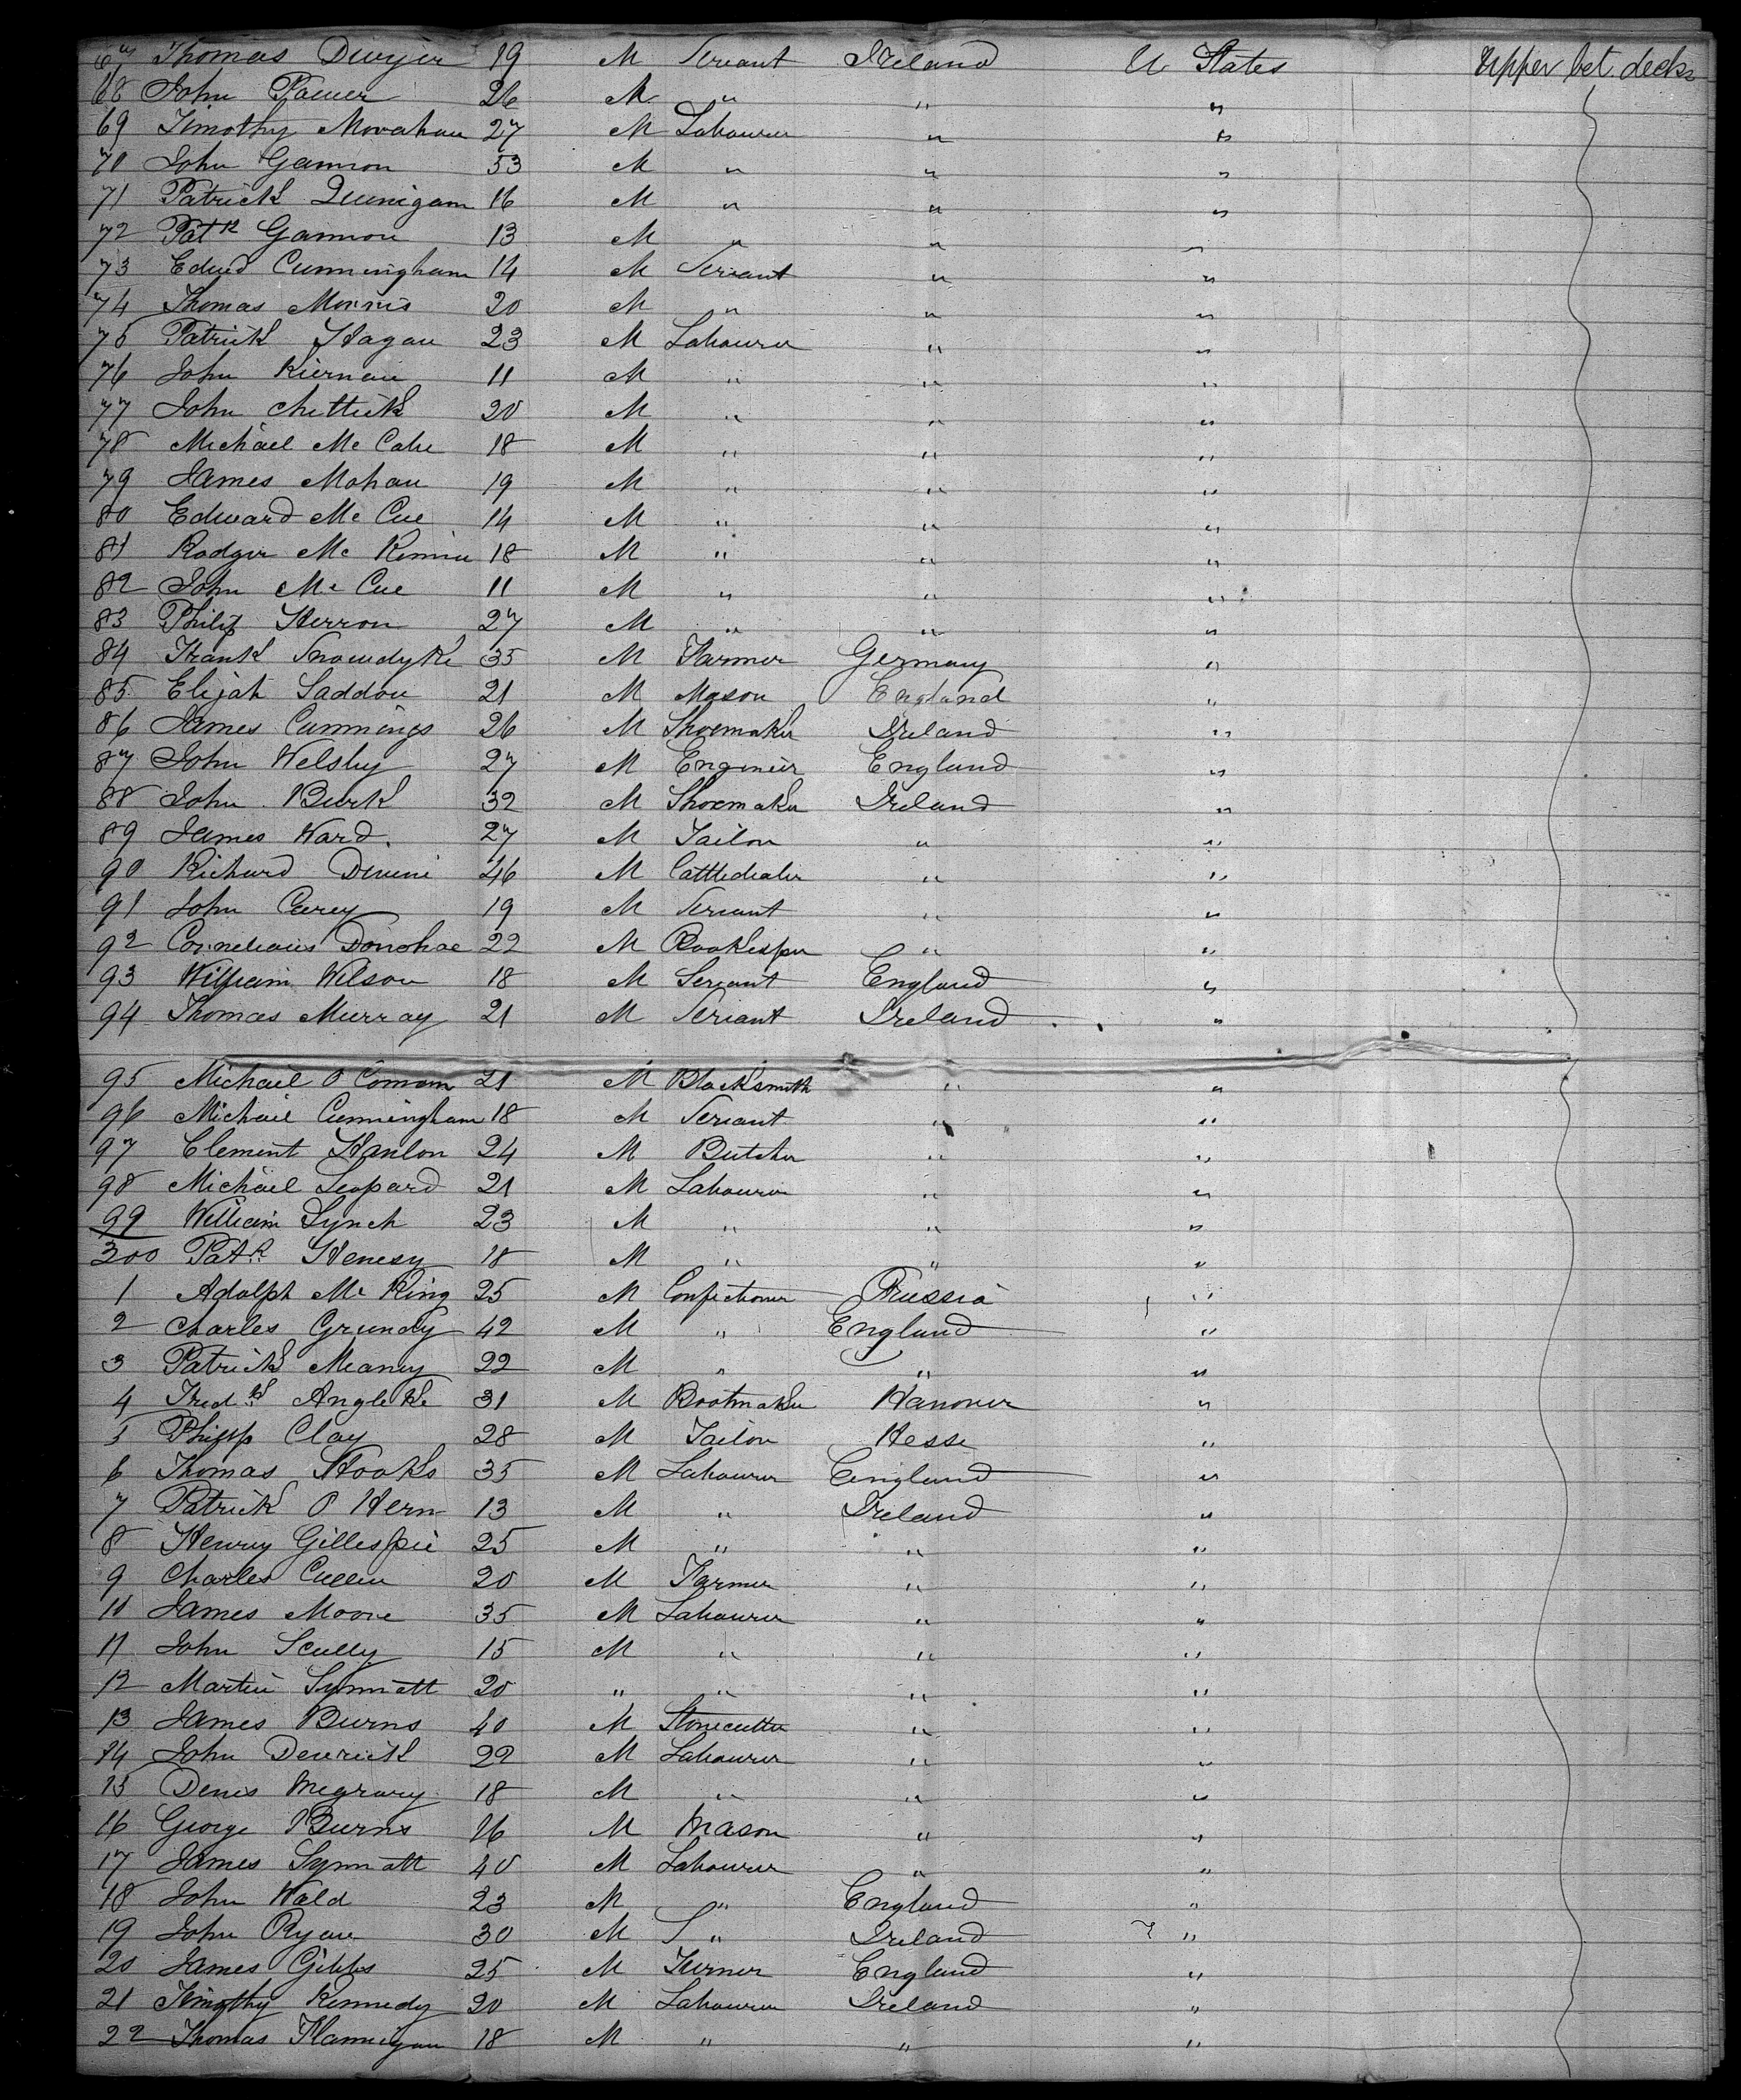 67 Thomas Dwyer 19 M Servant Ireland U States Upper bet decks
68 John Power 26 M " " "
69 Timothy Monahan 27 M Labourer " "
70 John Gannon 53 M " " "
71 Patrick Dunnigan 16 M " " "
72 Patk Gannon 13 M " " "
73 Edwd Cunningham 14 M Servant " "
74 Thomas Morris 20 M " " "
75 Patrick Hagan 23 M Labourer " "
76 John Kiernan 11 M " " "
77 John Chittick 20 M " " "
78 Michael Mc Cabe 18 M " " "
79 James Mohan 19 M " " "
80 Edward Mc Cue 14 M " " "
81 Rodger Mc 18 M " " "
82 John Mc Cue 11 M " " "
83 Philip Herron 27 M " " "
84 Frank Snowdyke 35 M Farmer Germany "
85 Elijah Saddon 21 M Mason England "
86 James Cummings 26 M Shoemaker Ireland "
87 John Welsby 27 M Engineer England "
88 John Burk 32 M Shoemaker Ireland "
89 James Ward. 27 M Tailor " "
90 Richard 46 M Cattledealer " "
91 John Carey 19 M Servant " "
92 Cornelious Donohoe 22 M Bookkeeper " "
93 William Wilson 18 M Servant England "
94 Thomas Murray 21 M Servant Ireland "
95 Michael O Connor 21 M Blacksmith " "
96 Michael Cunningham 18 M Servant " "
97 Clement Hanlon 24 M Butcher " "
98 Michael Leopard 21 M Labourer " "
99 William Lynch 23 M " " "
300 Patk Henesy 18 M " " "
1 Adolph Mc King 25 M Confectioner Prussia "
2 Charles Grundy 42 M " England "
3 Patrick Meaney 22 M " " "
4 Fredk Angleke 31 M Bootmaker Hanover "
5 Philip Clay 28 M Tailor Hesse "
6 Thomas Hooks 35 M Labourer England "
7 Patrick O Hern 13 M " Ireland "
8 Henry Gillespie 25 M " " "
9 Charles Cullen 20 M Farmer " "
10 James Moore 35 M Labourer " "
11 John Scully 15 M " " "
12 Martin Synnatt 20 " " " "
13 James Burns 40 M Stonecutter " "
14 John Deverick 22 M Labourer " "
15 Denis Megrary 18 M " " "
16 George Burns 26 M Mason " "
17 James Synnatt 40 M Labourer " "
18 John Wald 23 M " England "
19 John Ryan 30 M " Ireland "
20 James Gibbs 25 M Turner England "
21 Timothy Kennedy 20 M Labourer Ireland "
22 Thomas Flannigan 18 M " " "